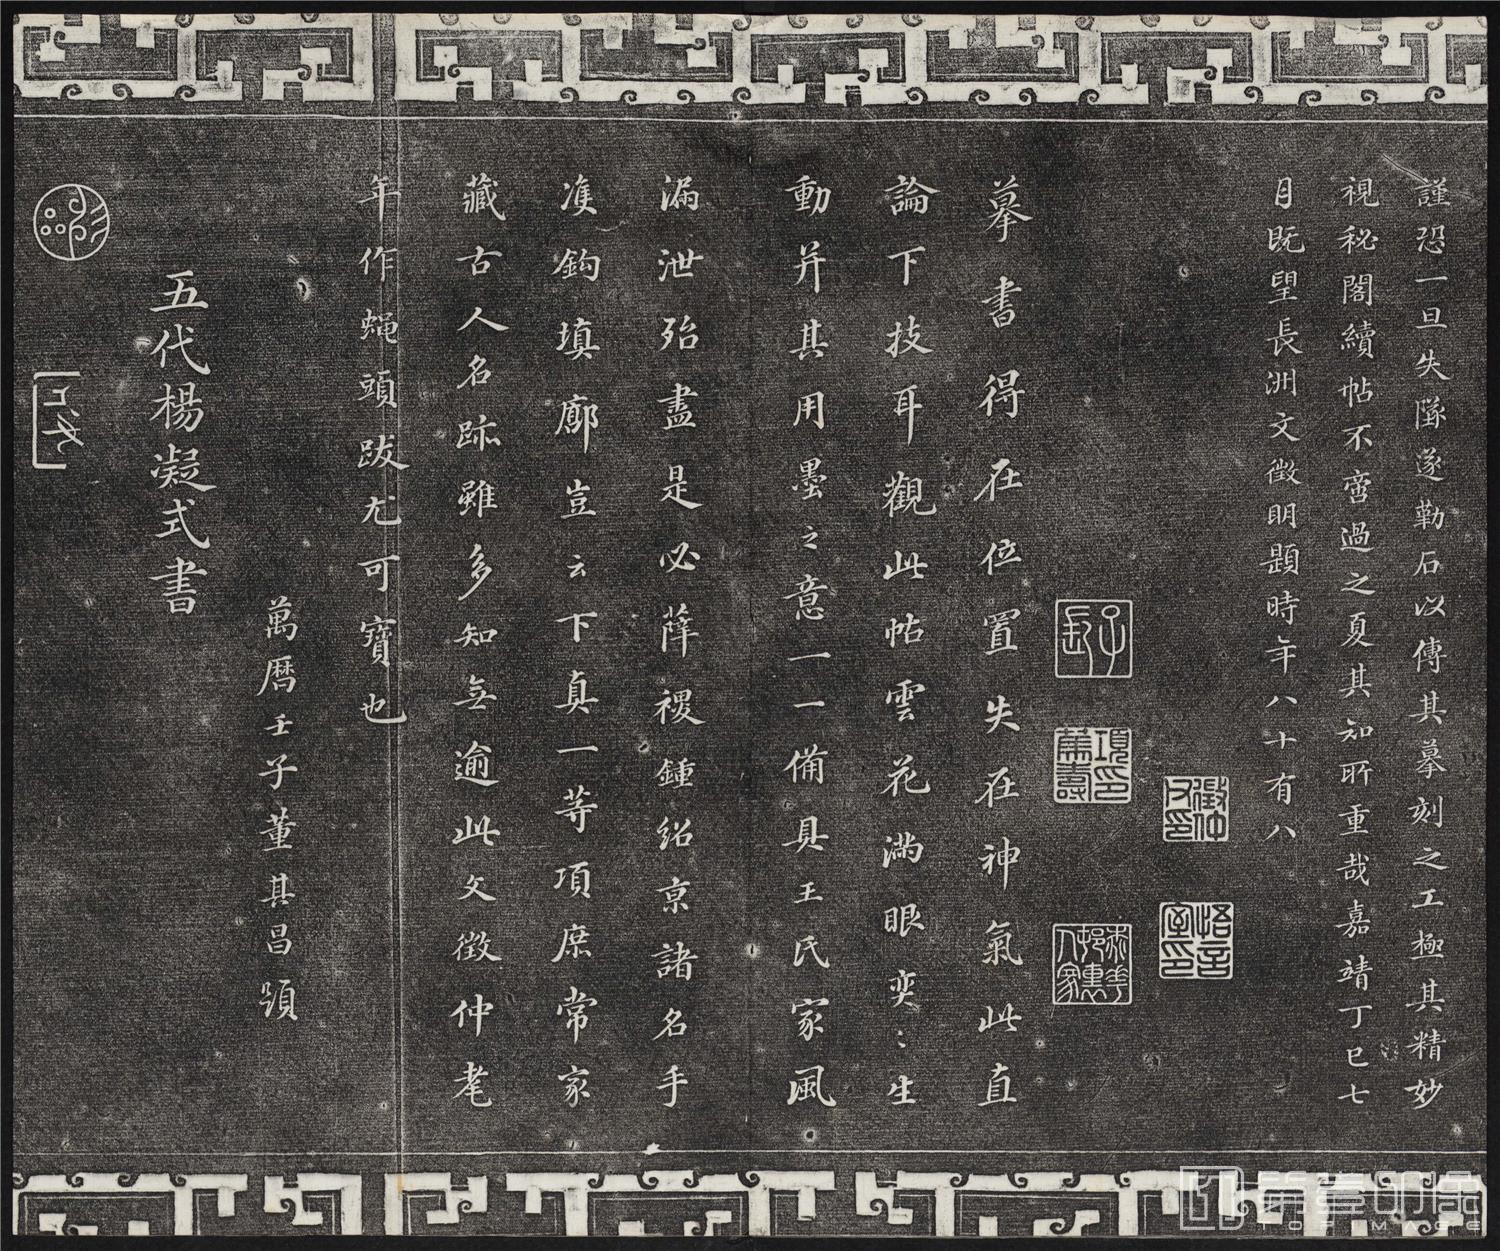 謹恐一旦失墜遂勒石以傳其摹刻之工極其精妙
視秘閣續帖不啻過之夏其知所重哉嘉靖丁巳七
月既望長洲文徵明題時年八十有八
徵仲父印
悟言室印
子長
項篤壽印
桃華邨裏人家
摹書得在位置失在神氣此直
論下技耳觀此帖雲花滿眼奕〻生
動并其用墨之意一一備具王氏家風
漏泄殆盡是必薛稷鍾紹京諸名手
准鈎填廓豈云下真一等項庶常家
藏古人名跡雖多知無逾此文徵仲耄
年作蠅頭跋尤可寶也
萬曆壬子董其昌題
五代楊凝式書
TOPIMAGE